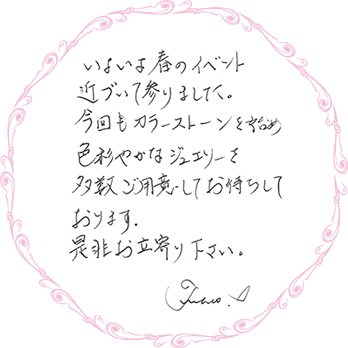 いよいよ春のイベント
近づいて参りました。
今回もカラーストーンを始め
色彩やかなジュエリーを
多数ご用意してお待ちして
おります.
是非お立寄り下さい。